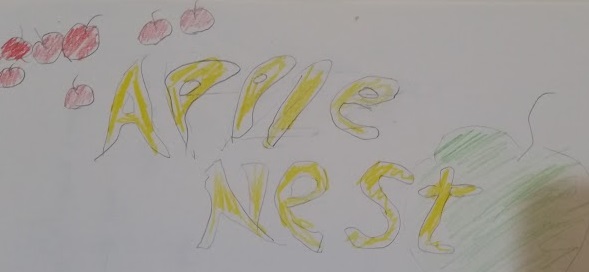 APPle
Nest